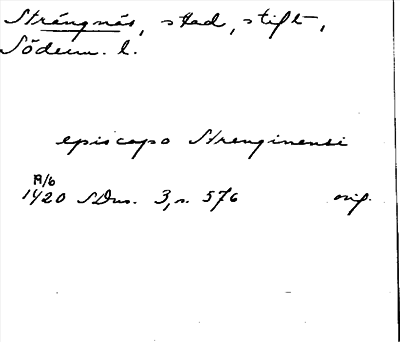 Strängnäs, stad, stift,
Söderm. l.
episcopo Strenginensi
19/6
1420 SDns. 3, s. 576 orig.